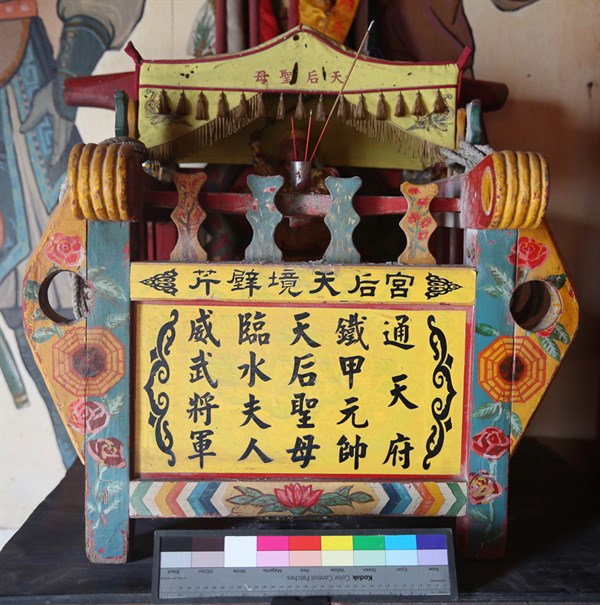 天后聖母
芹壁境天后宮
通天府
鐵甲元帥
天后聖母
臨水夫人
威武將軍
Kodak Color Control Patches
Blue Cyan Green Yellow Red Magenta White 3/Color Black